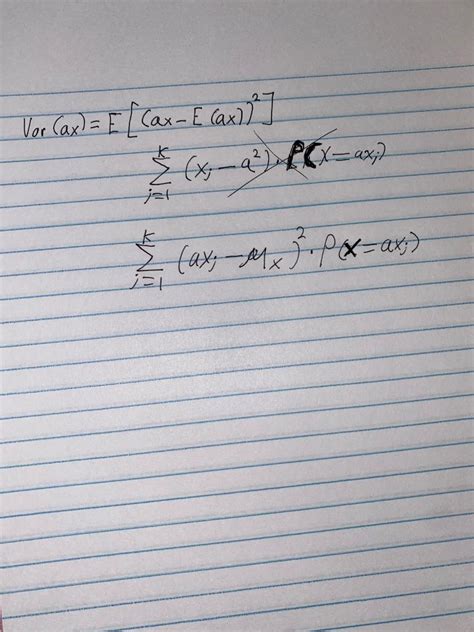 Var(ax) = E[(ax - E(ax))²]
k
∑ (xⱼ - a²) · P(X = axⱼ)
j=1
k
∑ (axⱼ - μₓ)² · P(X = axⱼ)
j=1